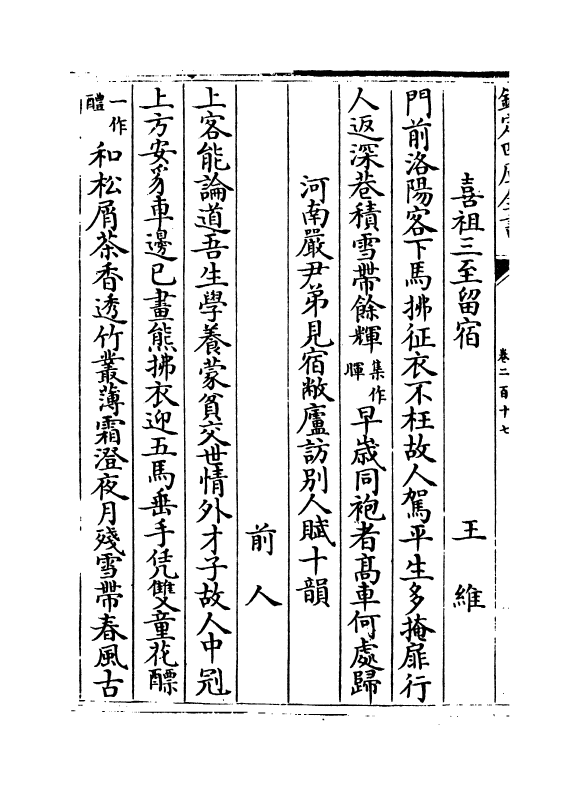 欽定四庫全書
卷二百十七
喜祖三至留宿 王維
門前洛陽客下馬拂征衣不枉故人駕平生多掩扉行
人返深巷積雪帶餘輝集作暉早歳同袍者髙車何處歸
河南嚴尹弟見宿敝廬訪别人賦十韻
前人
上客能論道吾生學養蒙貧交世情外才子故人中冠
上方安豸車邊已畫熊拂衣迎五馬垂手凭雙童花醥
一作醴和松屑茶香透竹叢薄霜澄夜月殘雪帶春風古